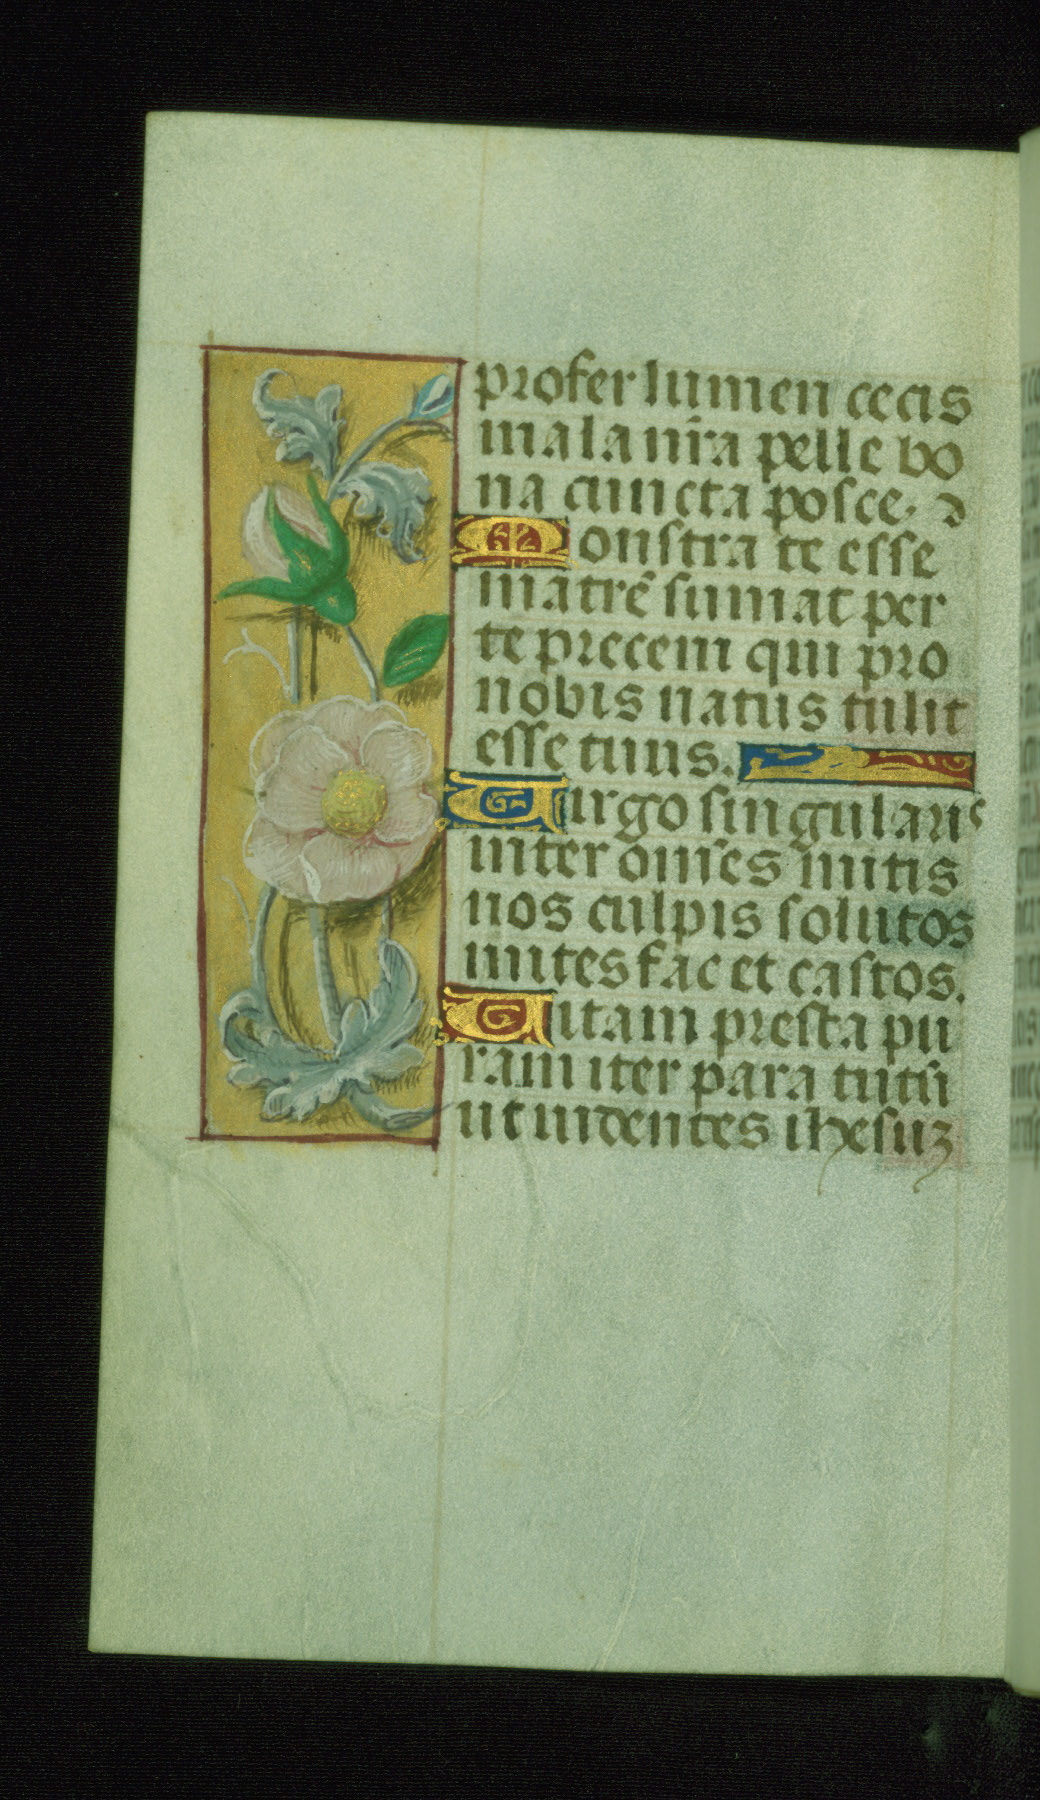 profer lumen cecis
mala nr̄a pelle bo
na cuncta posce.
Monstra te esse
matrē sumat per
te precem qui pro
nobis natus tulit
esse tuus.
Uirgo singularis
inter om̄es mitis
nos culpis solutos
mites fac et castos.
Uitam presta pu
ram iter para tutū
ut uidentes ihesuz